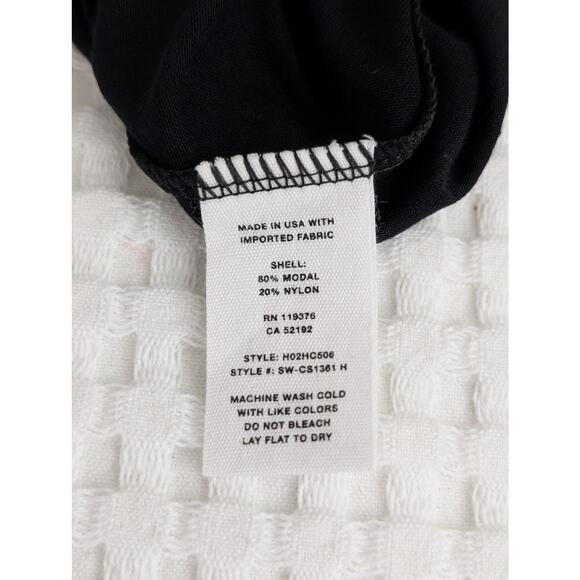 MADE IN USA WITH
IMPORTED FABRIC
SHELL:
80% MODAL
20% NYLON
RN 119376
CA 52192
STYLE: H02HC506
STYLE #: SW-CS1361 H
MACHINE WASH COLD
WITH LIKE COLORS
DO NOT BLEACH
LAY FLAT TO DRY